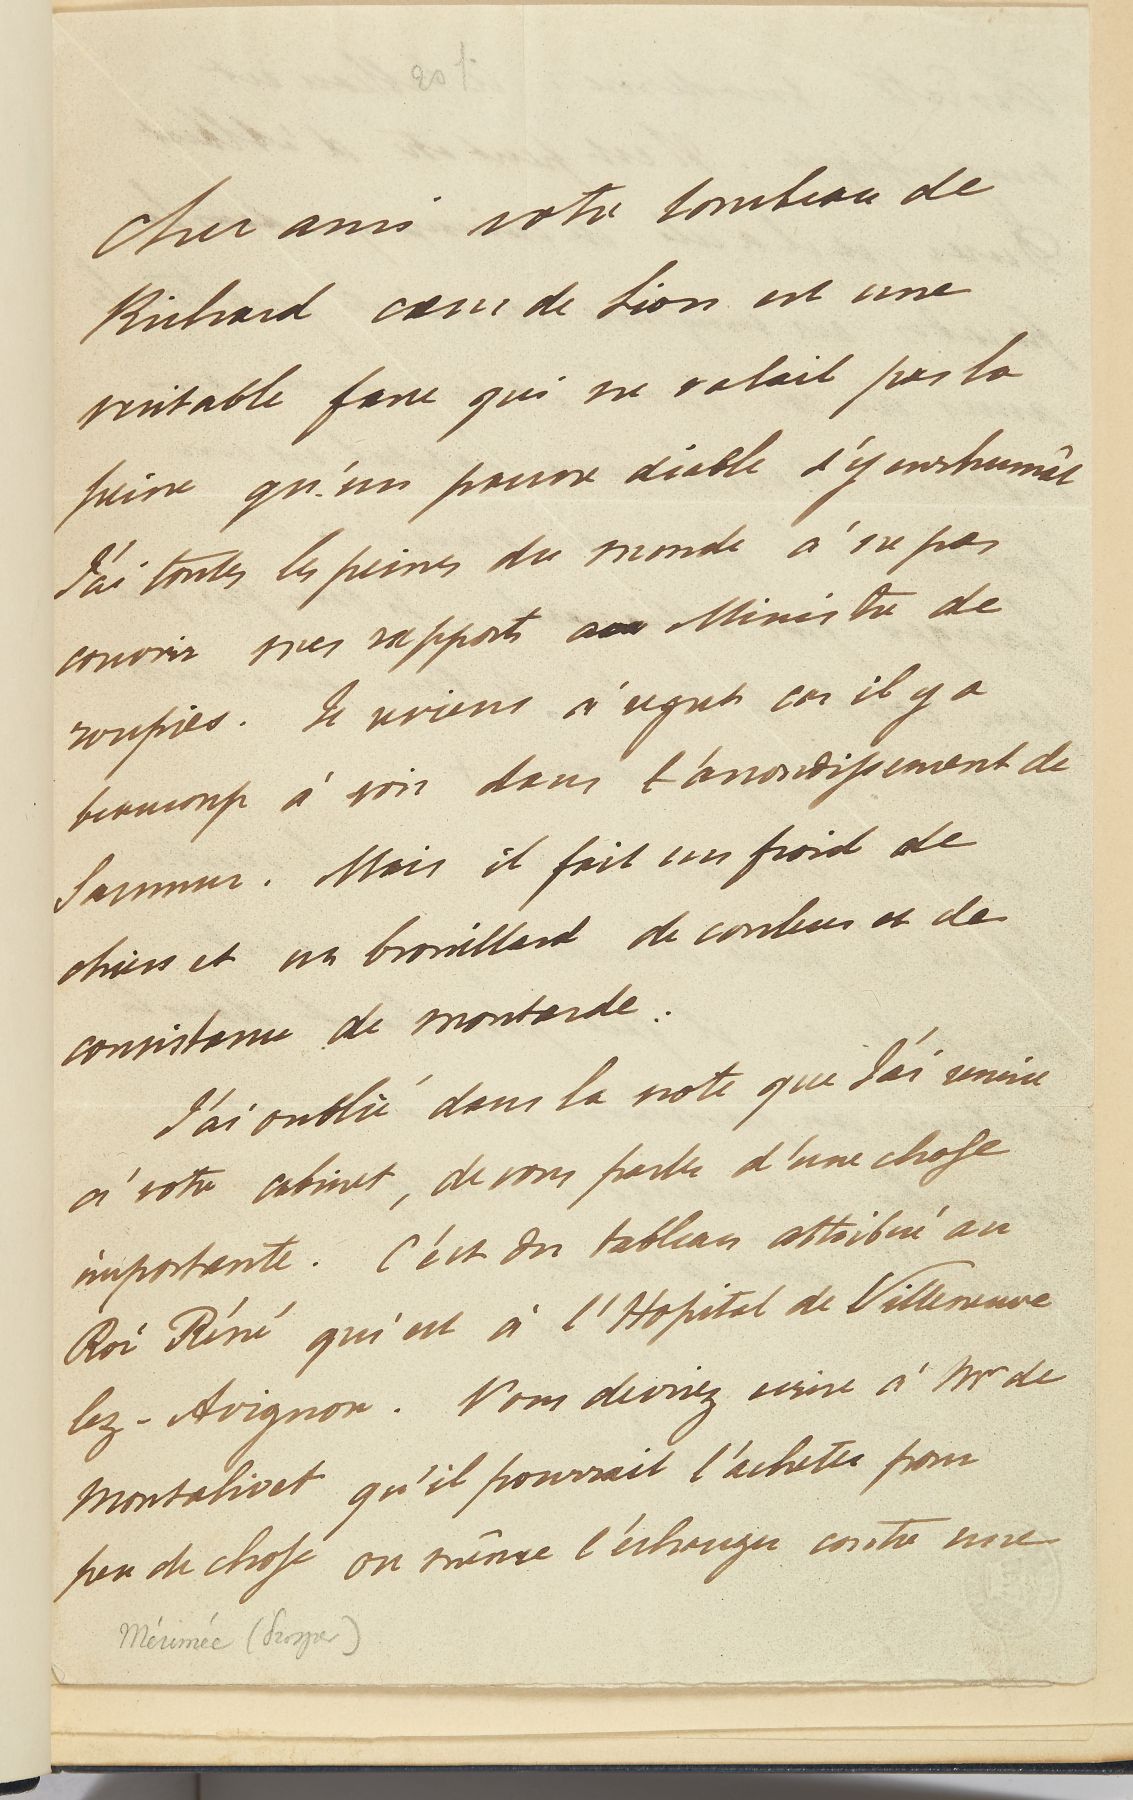 Cher ami votre tombeau de
Richard cœur de Lion est une
veritable farce qui ne valait pas la
peine qu'un pauvre diable s'y enrhumât
J'ai toutes les peines du monde à ne pas
couvrir mes rapports au Ministre de
roupies. Je reviens à regret car il y a
beaucoup à voir dans l'arrondissement de
Saumur. Mais il fait un froid de
chien et un brouillard de couleur et de
consistance de moutarde.
J'ai oublié dans la note que J'ai remise
à votre cabinet, de vous parler d'une chose
importante. C'est du tableau attribué au
Roi Réné qui est à l'Hopital de Villeneuve
lez-Avignon. Vous devriez ecrire à Mr de
Montalivet qu'il pourrait l'acheter pour
peu de chose ou même l'echanger contre une
Mérimée (Prosper)